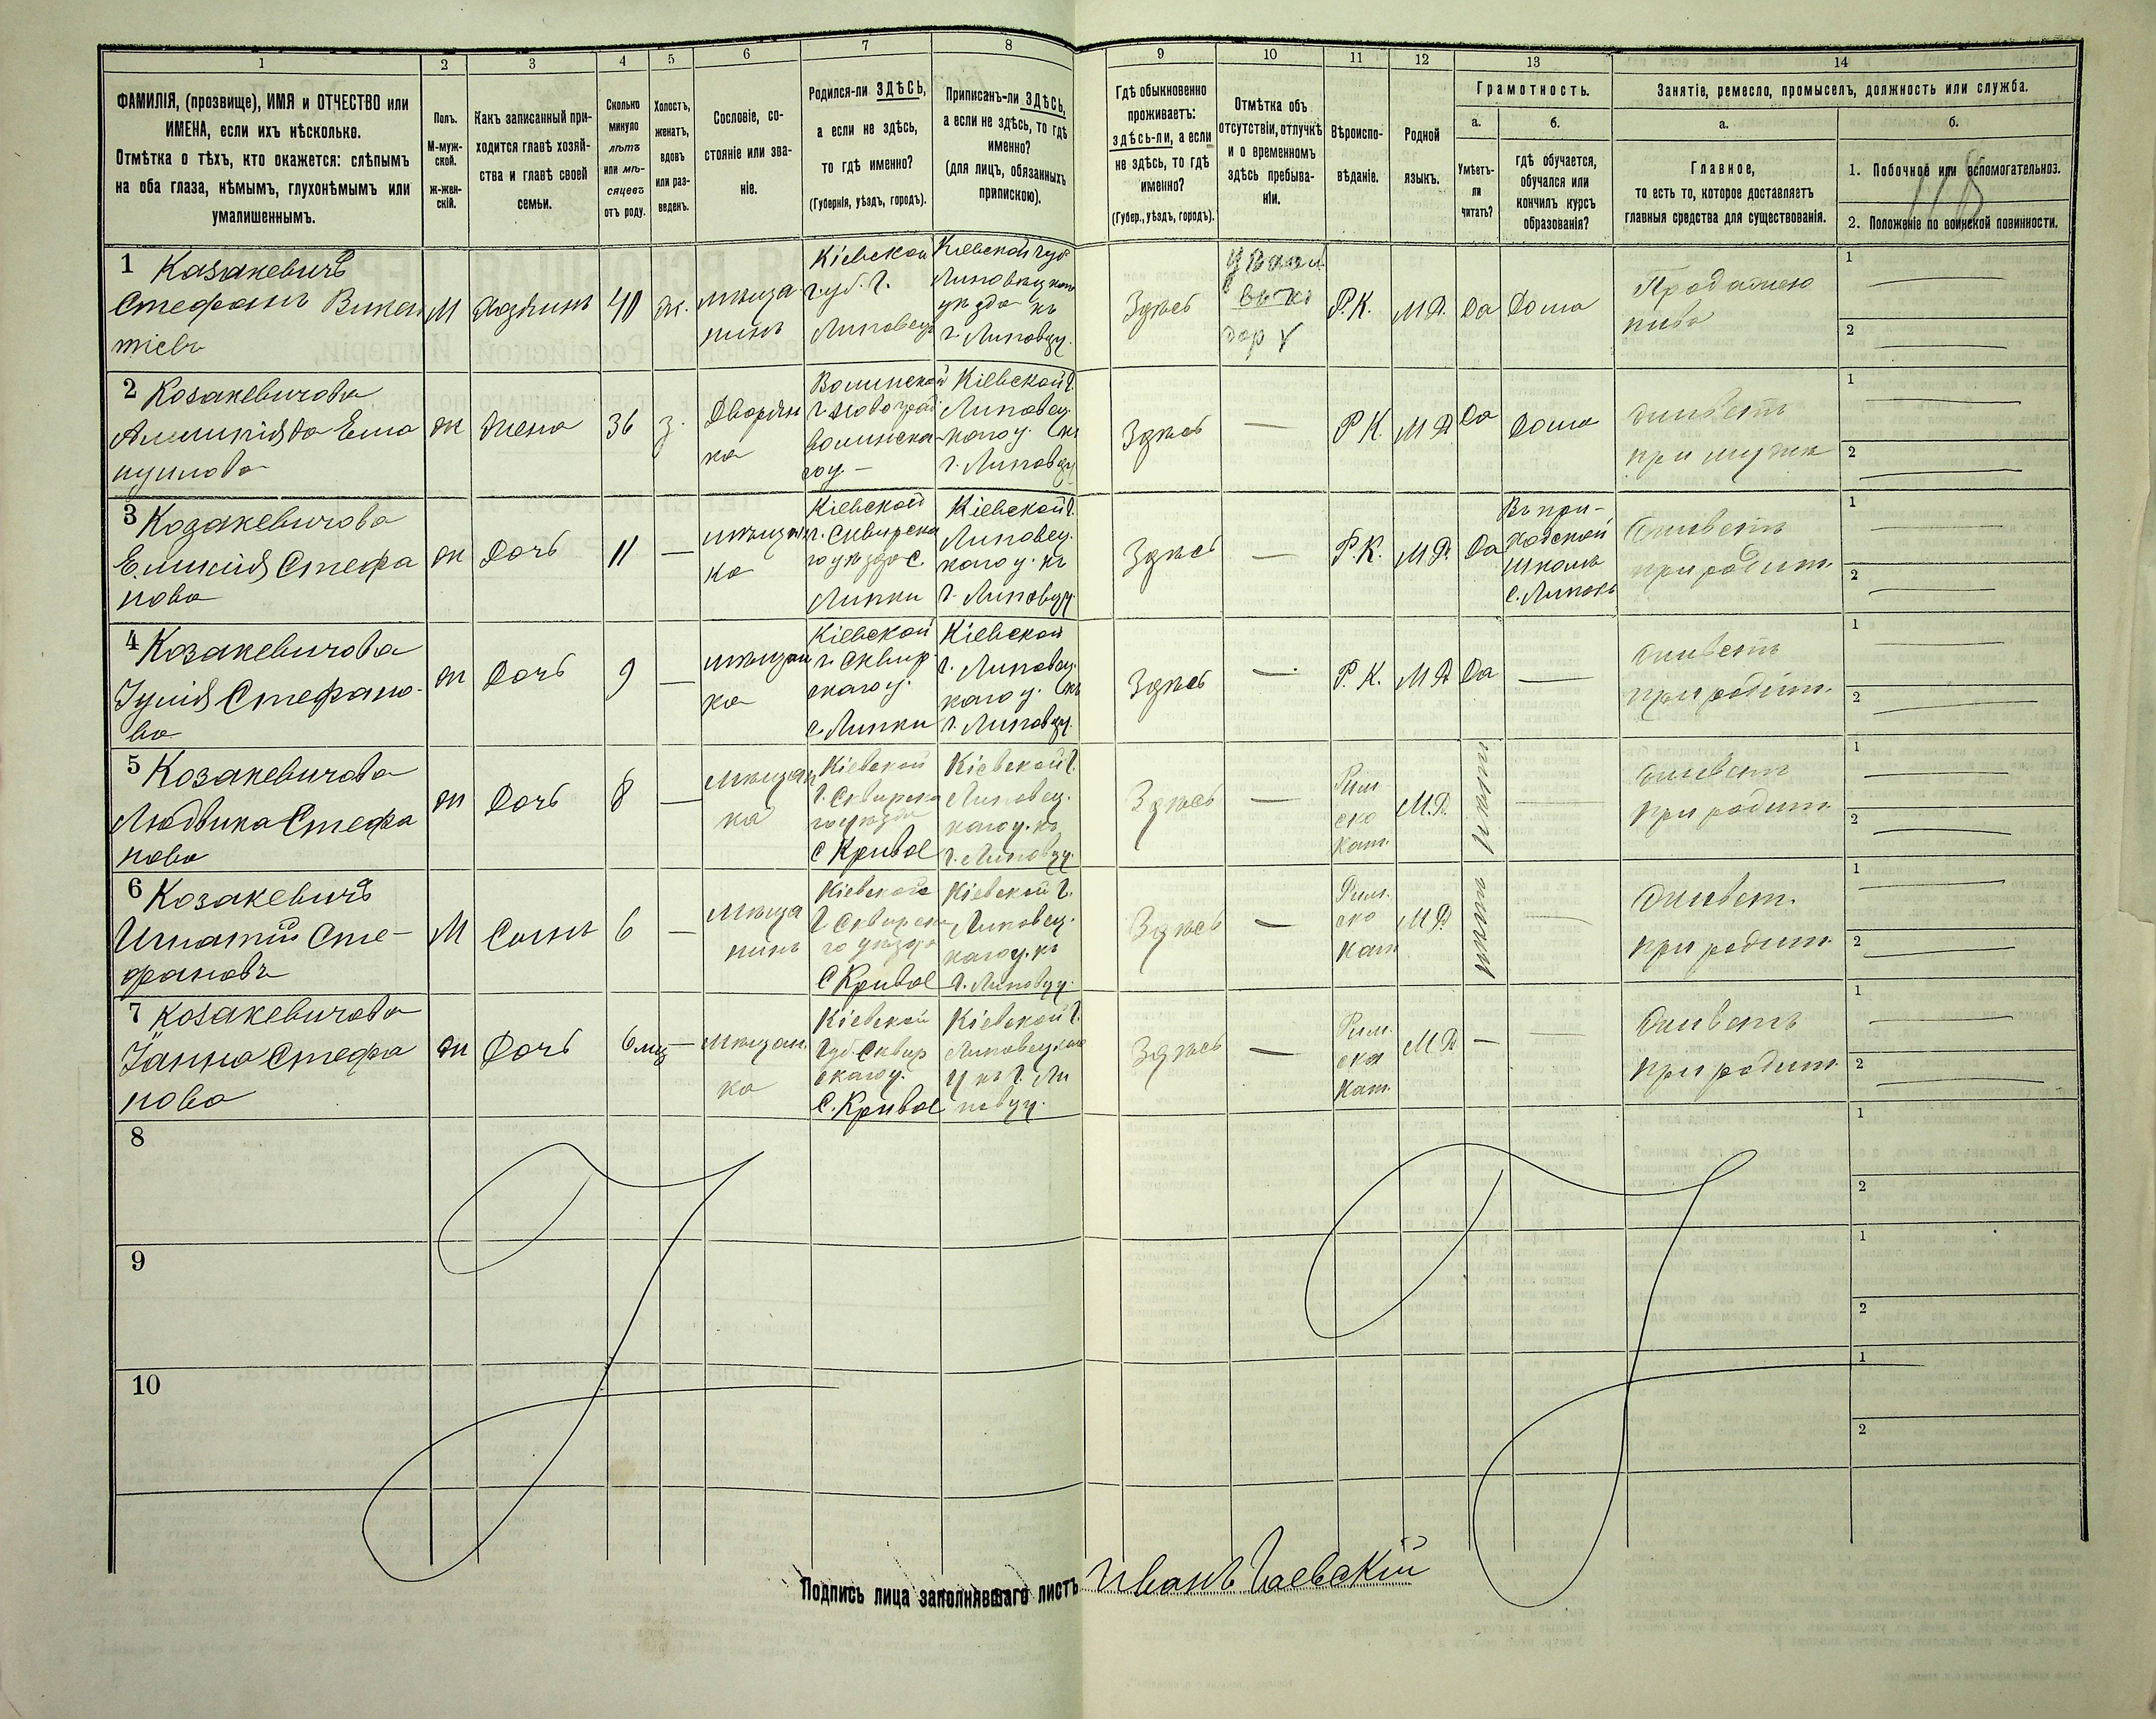 1
2
3
4
5
6
7
8
9
10
11
12
13
14
ФАМИЛІЯ, (прозвище), ИМЯ и ОТЧЕСТВО или
ИМЕНА, если ихъ нѣсколько.
Отмѣтка о тѣхъ, кто окажется: слѣпымъ
на оба глаза, нѣмымъ, глухонѣмымъ или
умалишеннымъ.
Полъ.
М-муж-
ской.
ж-жен-
скій.
Какъ записанный при-
ходится главѣ хозяй-
ства и главѣ своей
семьи.
Сколько
минуло
лѣтъ
или мѣ-
сяцевъ
отъ роду.
Холостъ,
женатъ,
вдовъ
или раз-
веденъ.
Сословіе, со-
стояніе или зва-
ніе.
Родился-ли ЗДѢСЬ,
а если не здѣсь,
то гдѣ именно?
(Губернія, уѣздъ, городъ).
Приписанъ-ли ЗДѢСЬ,
а если не здѣсь, то гдѣ
именно?
(для лицъ, обязанныхъ
припискою).
Гдѣ обыкновенно
проживаетъ:
здѣсь-ли, а если
не здѣсь, то гдѣ
именно?
(Губер., уѣздъ, городъ).
Отмѣтка объ
отсутствіи, отлучкѣ
и о временномъ
здѣсь пребыва-
ніи.
Вѣроиспо-
вѣданіе.
Родной
языкъ.
Грамотность.
а.
Умѣетъ-
ли
читать?
б.
гдѣ обучается,
обучался или
кончилъ курсъ
образованія?
Занятіе, ремесло, промыселъ, должность или служба.
а.
Главное,
то есть то, которое доставляетъ
главныя средства для существованія.
б.
1. Побочное или вспомогательноз.
2. Положеніе по воинской повинности.
1 Казакевичъ
Стефанъ Викен
тіевъ
М
Хозяинъ
40
ж.
мѣща
нинъ
Кіевской
губ. г.
Липовецъ
Кіевской губ
Липовецкого
уѣзда къ
г. Липовцу.
Здѣсь
Р.К.
М П.
Да
Дома
Продажею
пива
1
2
2 Козакевичова
Ема
нуилова
ж
жена
36
з.
Дворян
ка
Волинской
г. Новоград
волинска
го у. —
Кіевской г.
Липовец.
каго у. къ
г. Липовцу
Здѣсь
—
Р К.
М П
Да
Дома
живетъ
при мужѣ
1
2
3 Козакевичова
Емилія Стефа
нова
ж
Дочь
11
—
мѣщан
ка
Кіевской
г. Сквирска
го уѣзда с.
Липки
Кіевской г.
Липовец.
каго у. къ
г. Липовцу.
Здѣсь
—
Р.К.
М П.
Да
Въ при-
ходской
школѣ
с. Липкахъ
живетъ
при родит.
1
2
4 Козакевичова
Іулія Стефано-
ва
ж
Дочь
9
—
мѣщан
ка
Кіевской
г. Сквир
скаго у.
с. Липки
Кіевской
г. Липовец.
каго у. къ
г. Липовцу.
Здѣсь
—
Р. К.
М П
Да
—
живетъ
при родит.
1
2
5 Козакевичова
Людвика Стефа
нова
ж
Дочь
8
—
Мѣщан
ка
Кіевской
г. Сквирска
го уѣзда
с Кривое
Кіевской г.
Липовец.
каго у. къ
г. Липовцу.
Здѣсь
—
Рим-
ско
кат.
М.П.
нѣтъ
—
живетъ
при родит
1
2
6 Козакевичъ
Игнатій Сте-
фановъ
М
Сынъ
6
—
Мѣща
нинъ
Кіевской
г. Сквирска
го уѣзда
с Кривое
Кіевской г.
Липовец.
каго у. къ
г. Липовцу.
Здѣсь
—
Рим.
ско
кат
М П
нѣтъ
—
живет.
при родит.
1
2
7 Козакевичова
Іанна Стефа
нова
ж
Дочь
6 мц
—
Мѣщан.
ка
Кіевской
губ. Сквир
скаго у.
с. Кривое
Кіевской г.
Липовецкаго
у къ г. Ли
повцу.
Здѣсь
—
Рим.
ско
кат.
М П
—
—
живетъ
при родит.
1
2
8
1
2
9
1
2
10
1
2
Подпись лица заполнявшаго листъ Иванъ Гаевскій